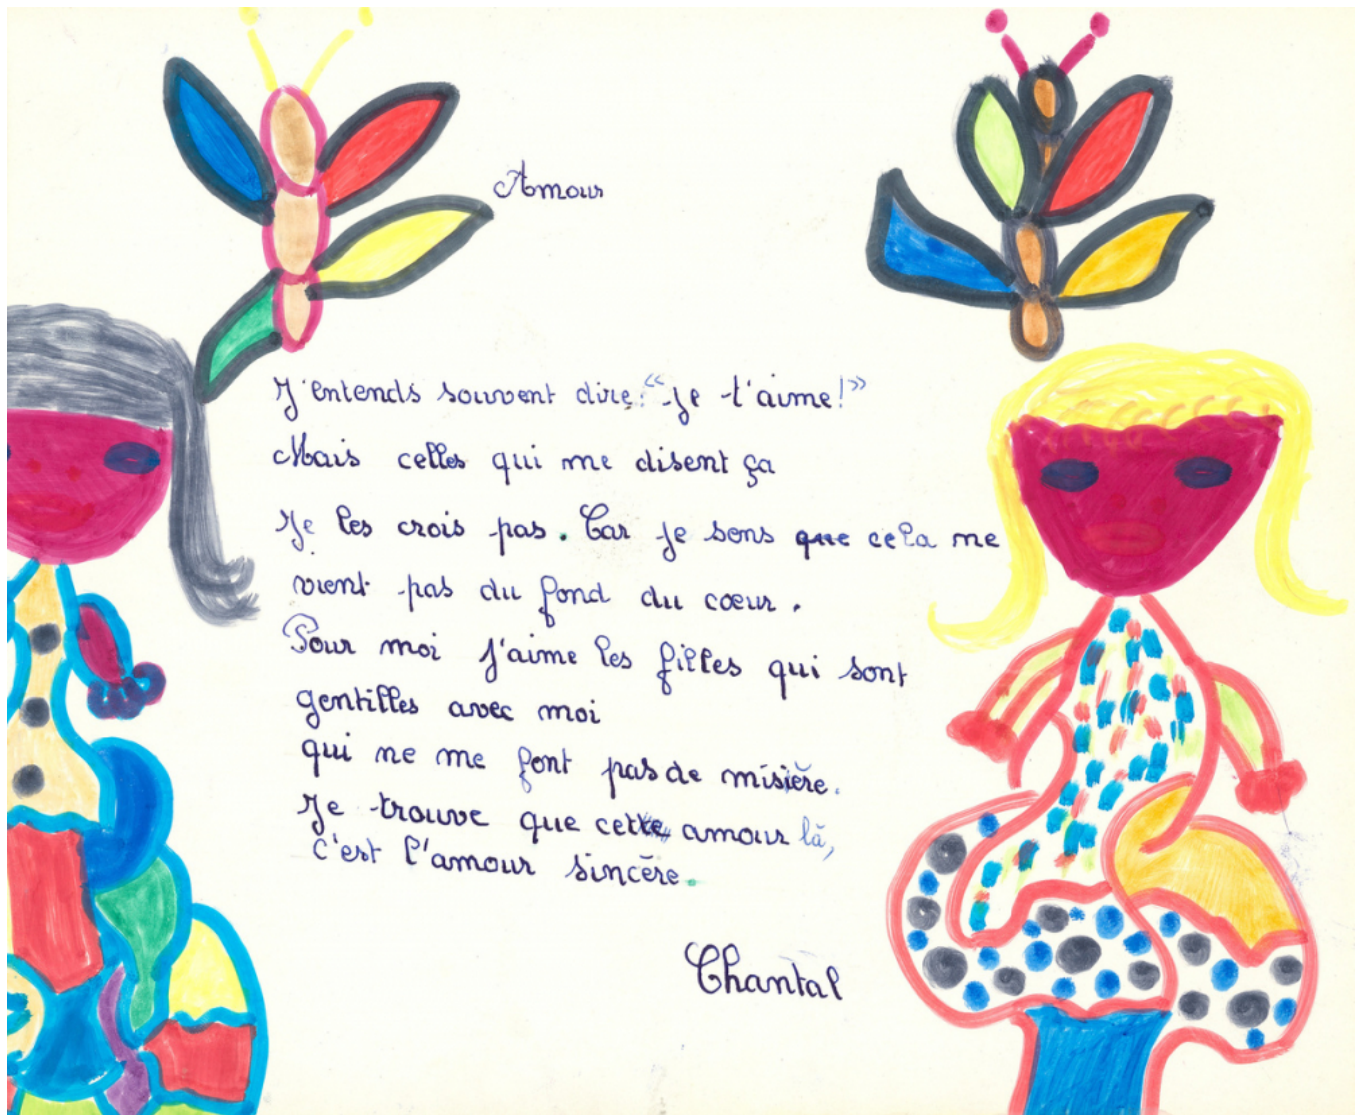 Amour
J'entends souvent dire: "Je t'aime!"
Mais celles qui me disent ça
Je les crois pas. Car je sens que cela me
vient pas du fond du coeur.
Pour moi j'aime les filles qui sont
gentilles avec moi
qui ne me font pas de misière.
Je trouve que cette amour là,
c'est l'amour sincère.
Chantal